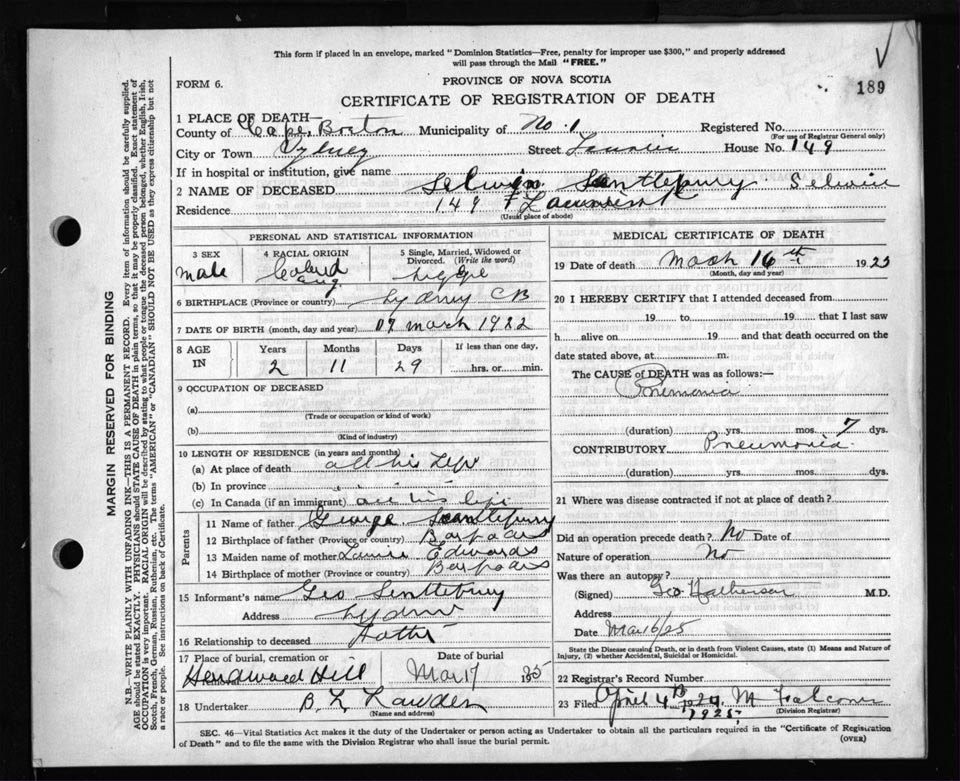 This form if placed in an envelope, marked "Dominion Statistics—Free, penalty for improper use $300," and properly addressed
will pass through the Mail "FREE."
FORM 6.
PROVINCE OF NOVA SCOTIA
189
CERTIFICATE OF REGISTRATION OF DEATH
1 PLACE OF DEATH—
County of Cape Breton Municipality of No. 1 Registered No.
(For use of Registrar General only)
City or Town Sydney Street House No. 149
If in hospital or institution, give name
2 NAME OF DECEASED Selwin
Residence 149
(Usual place of abode)
PERSONAL AND STATISTICAL INFORMATION
3 SEX
male
4 RACIAL ORIGIN
5 Single, Married, Widowed or Divorced. (Write the word)
6 BIRTHPLACE (Province or country) Sydney CB
7 DATE OF BIRTH (month, day and year) March 1922
8 AGE IN
Years Months Days If less than one day,
2 11 29 hrs. or min.
9 OCCUPATION OF DECEASED
(a)
(Trade or occupation or kind of work)
(b)
(Kind of industry)
10 LENGTH OF RESIDENCE (in years and months)
(a) At place of death all his Life
(b) In province
(c) In Canada (if an immigrant) all his life
Parents
11 Name of father George
12 Birthplace of father (Province or country) Barbados
13 Maiden name of mother Edwards
14 Birthplace of mother (Province or country) Barbados
15 Informant's name Geo
Address Sydney
16 Relationship to deceased Father
17 Place of burial, cremation or removal Date of burial
Hardwood Hill Mar 17 1925
18 Undertaker B L
(Name and address)
MEDICAL CERTIFICATE OF DEATH
19 Date of death 16th 1925
(Month, day and year)
20 I HEREBY CERTIFY that I attended deceased from
19 to 19 that I last saw
h alive on 19 and that death occurred on the
date stated above, at m.
The CAUSE of DEATH was as follows:—
(duration) yrs. mos. 7 dys.
CONTRIBUTORY Pneumonia
(duration) yrs. mos. dys.
21 Where was disease contracted if not at place of death?
Did an operation precede death? No Date of
Nature of operation No
Was there an autopsy?
(Signed) Geo M.D.
Address
Date Mar 16/25
State the Disease causing Death, or in death from Violent Causes, state (1) Means and Nature of
Injury, (2) whether Accidental, Suicidal or Homicidal.
22 Registrar's Record Number
23 Filed April 4th 1925. M
(Division Registrar)
SEC. 46—Vital Statistics Act makes it the duty of the Undertaker or person acting as Undertaker to obtain all the particulars required in the "Certificate of Registration
of Death" and to file the same with the Division Registrar who shall issue the burial permit.
(OVER)
MARGIN RESERVED FOR BINDING
N.B.—WRITE PLAINLY WITH UNFADING INK—THIS IS A PERMANENT RECORD. Every item of information should be carefully supplied.
AGE should be stated EXACTLY. PHYSICIANS should STATE CAUSE OF DEATH in plain terms, so that it may be properly classified. Exact statement of
OCCUPATION is very important. RACIAL ORIGIN will be described by stating to what people or tongue the deceased person belonged, whether English, Irish,
Scotch, French, German, Russian, Ruthenian, etc. The terms "AMERICAN" or "CANADIAN" SHOULD NOT BE USED as they express citizenship but not
a race or people. See instructions on back of Certificate.